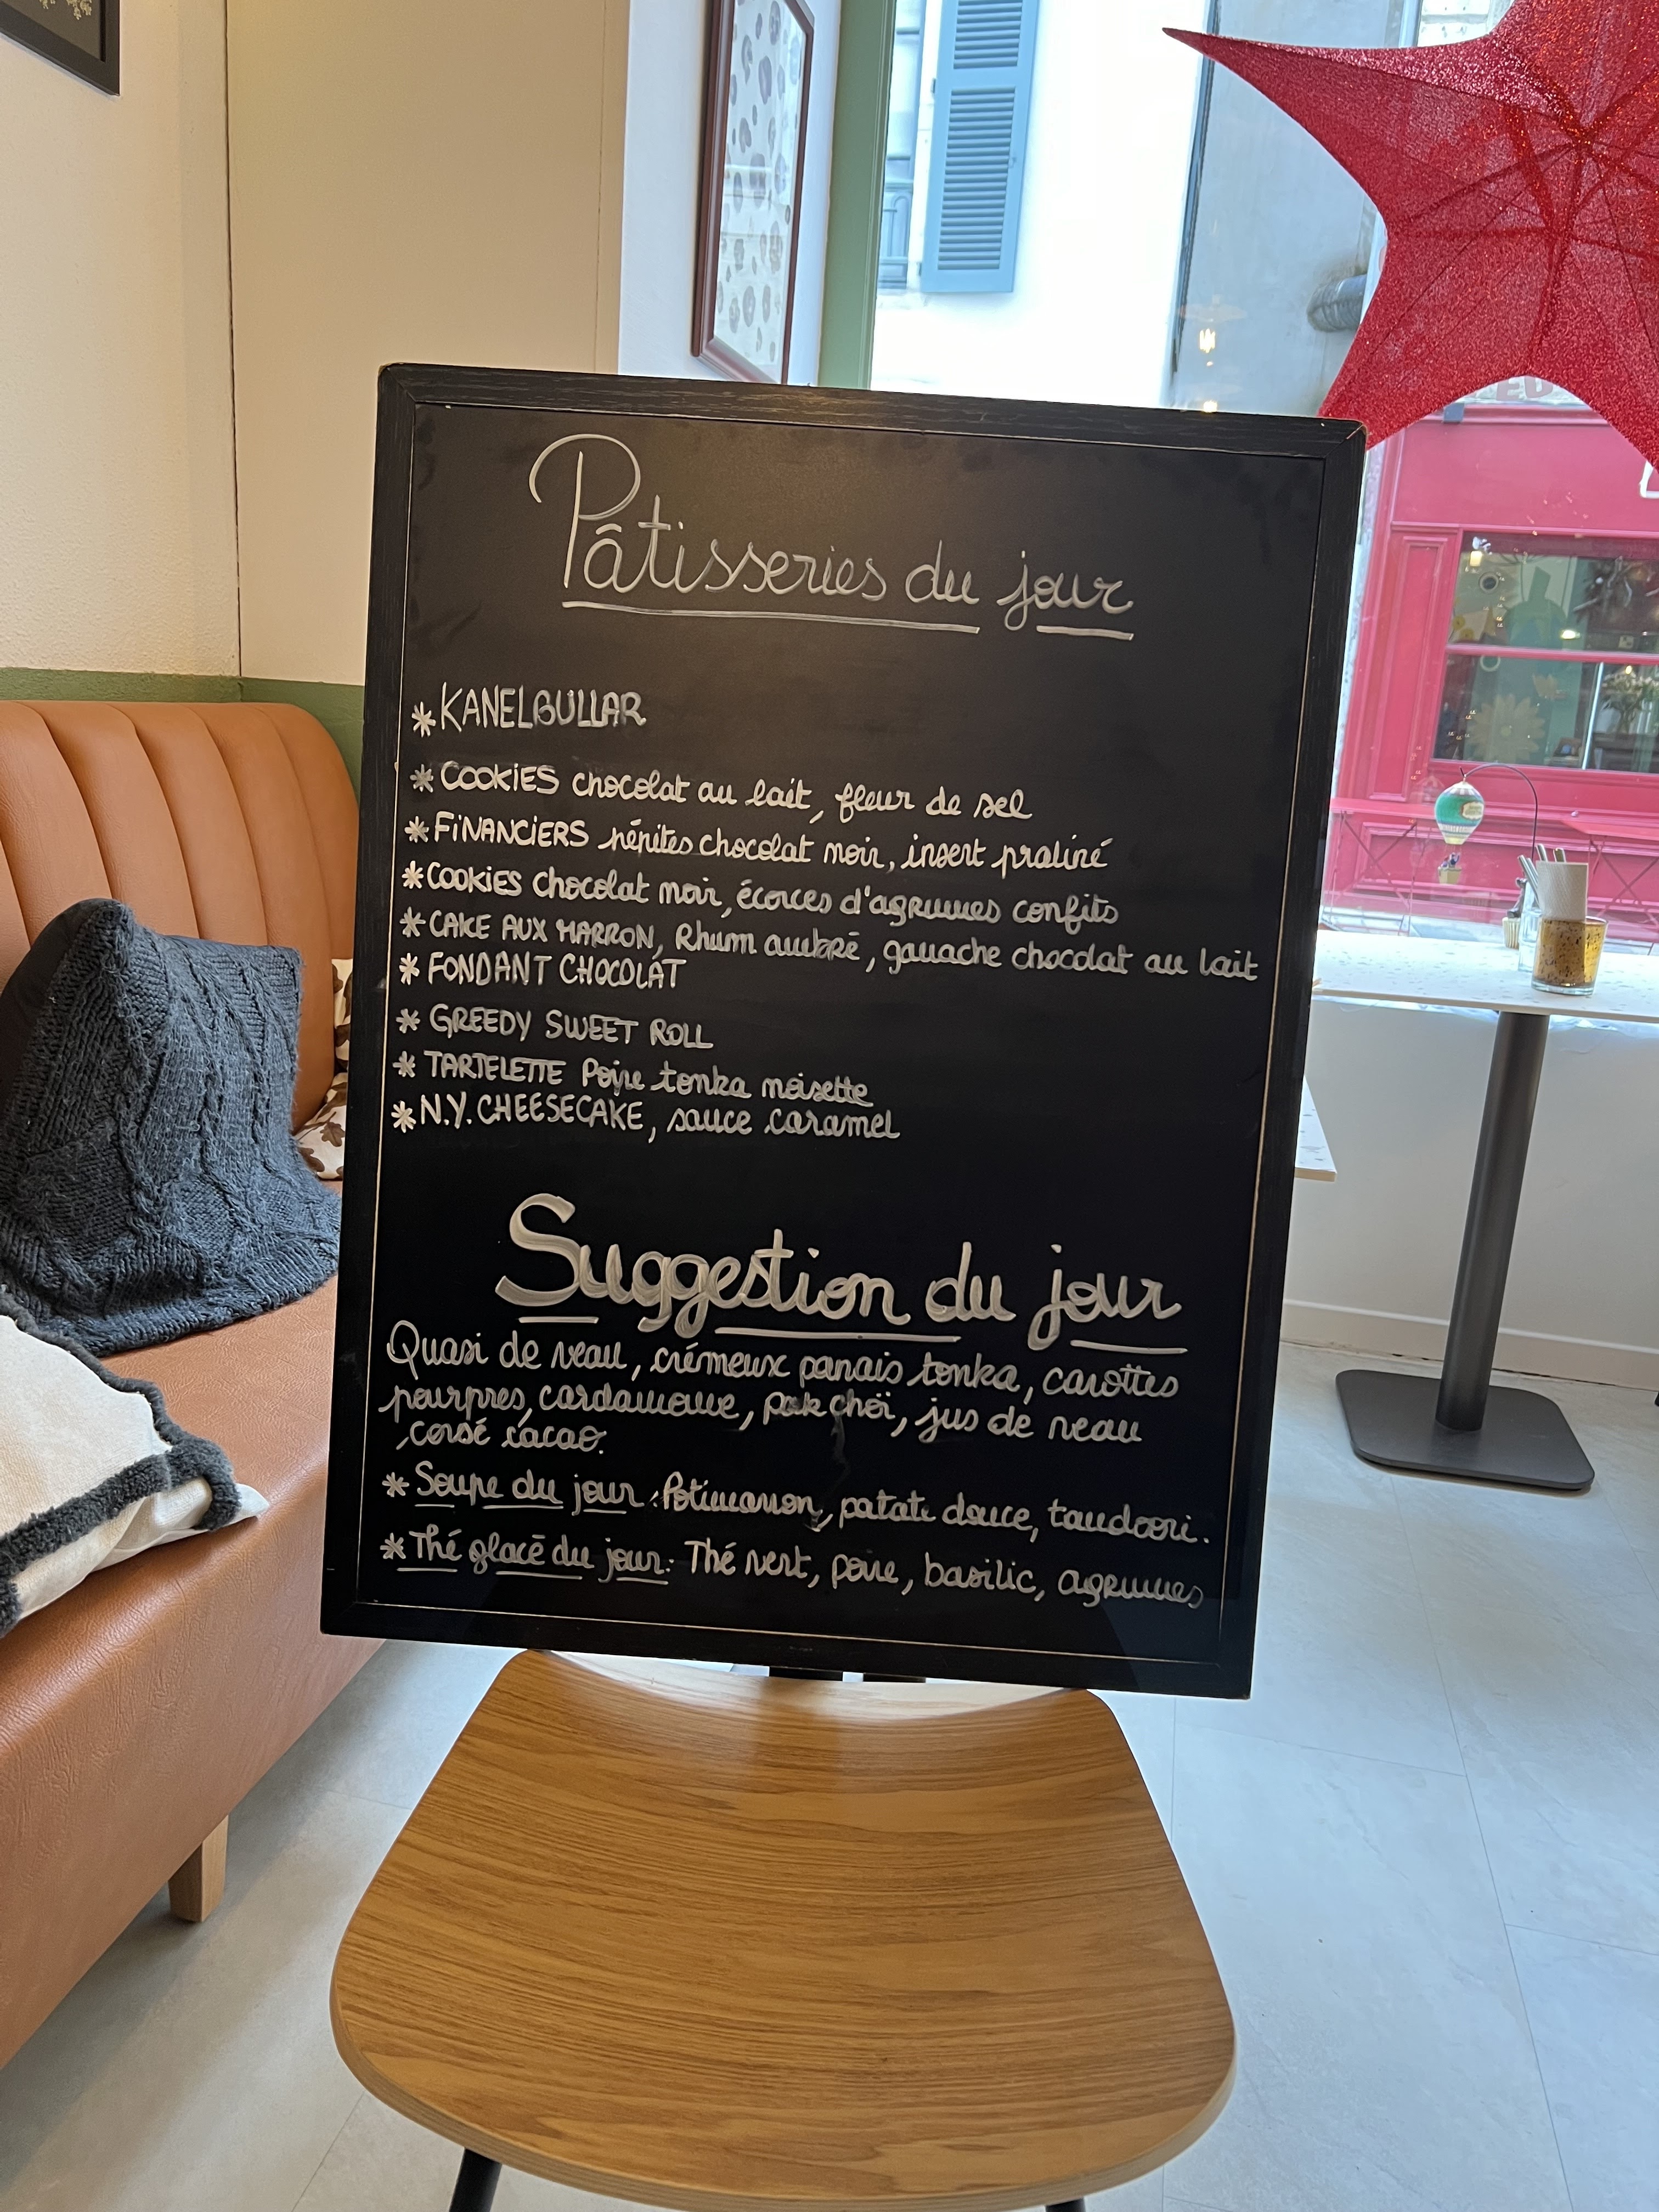 Pâtisseries du jour
* KANELBULLAR
* COOKIES chocolat au lait, fleur de sel
* FINANCIERS pépites chocolat noir, insert praliné
* COOKIES chocolat noir, écorces d'agrumes confits
* CAKE AUX MARRON, Rhum ambré, ganache chocolat au lait
* FONDANT CHOCOLAT
* GREEDY SWEET ROLL
* TARTELETTE Poire tonka noisette
* N.Y. CHEESECAKE, sauce caramel
Suggestion du jour
Quasi de veau, crémeux panais tonka, carottes
pourpres, cardamome, pak choï, jus de veau
corsé cacao.
* Soupe du jour : Potimarron, patate douce, tandoori.
* Thé glacé du jour : Thé vert, poire, basilic, agrumes